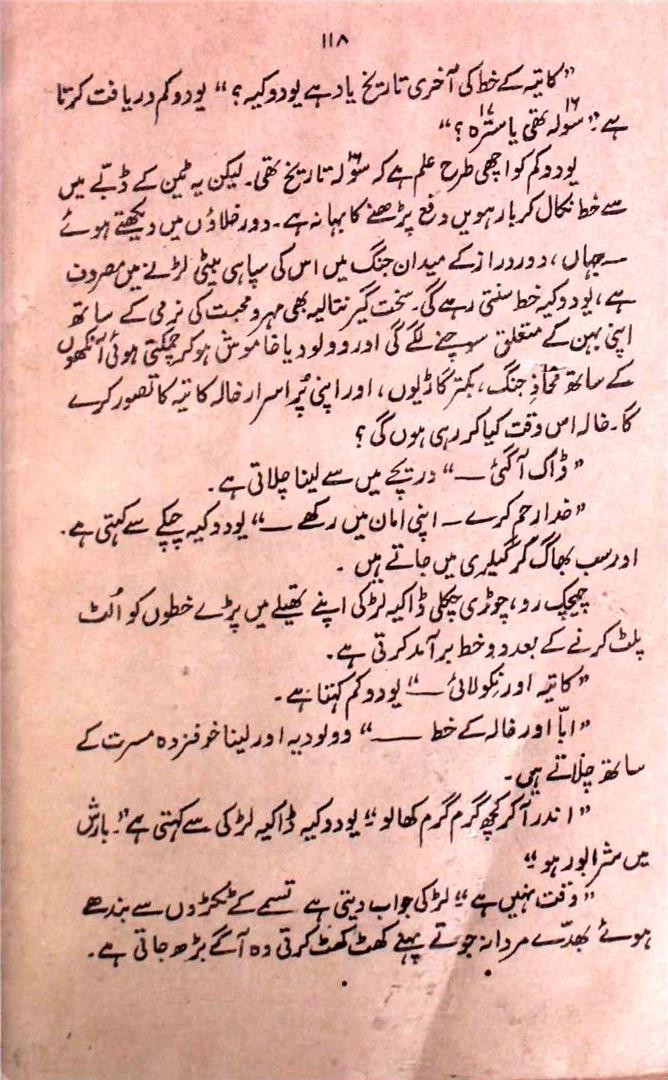 ۱۱۸
”کاتیہ کے خط کی آخری تاریخ یاد ہے یودوکیہ؟“ یودوکم دریافت کرتا
ہے۔ ”سولہ ۱۶ تھی یا سترہ ۱۷؟“
یودوکم کو اچھی طرح علم ہے کہ سولہ تاریخ تھی۔ لیکن یہ ٹین کے ڈبّے میں
سے خط نکال کر بارھویں دفع پڑھنے کا بہانہ ہے۔ دور خلاؤں میں دیکھتے ہوئے
— جہاں، دور دراز کے میدان جنگ میں اس کی سپاہی بیٹی لڑنے میں مصروف
ہے، یودوکیہ خط سنتی رہے گی۔ سخت گیر نتالیہ بھی مہر و محبت کی نرمی کے ساتھ
اپنی بہن کے متعلق سوچنے لگے گی اور وولودیا خاموش ہوکر چمکتی ہوئی آنکھوں
کے ساتھ محاذِ جنگ، بکتر گاڑیوں، اور اپنی پُر اسرار خالہ کاتیہ کا تصور کرے
گا۔ خالہ اس وقت کیا کر رہی ہوں گی؟
”ڈاک آ گئی —“ دریچے میں سے لینا چلاتی ہے۔
”خدا رحم کرے — اپنی امان میں رکھے —“ یودوکیہ چپکے سے کہتی ہے۔
اور سب بھاگ کر گیلری میں جاتے ہیں۔
چیچک رو، چوڑی چکلی ڈاکیہ لڑکی اپنے تھیلے میں پڑے خطوں کو اُلٹ
پلٹ کرنے کے بعد دو خط برآمد کرتی ہے۔
”کاتیہ اور نِکولائی —“ یودوکم کہتا ہے۔
”ابّا اور خالہ کے خط —“ وولودیہ اور لینا خوفزدہ مسرت کے
ساتھ چلّاتے ہیں۔
”اندر آ کر کچھ گرم گرم کھا لو“ یودوکیہ ڈاکیہ لڑکی سے کہتی ہے۔ ”بارش
میں شرابور ہو“
”وقت نہیں ہے“ لڑکی جواب دیتی ہے تسمے کے ٹکڑوں سے بندھے
ہوئے بھدّے مردانہ جوتے پہنے کھٹ کھٹ کرتی وہ آگے بڑھ جاتی ہے۔